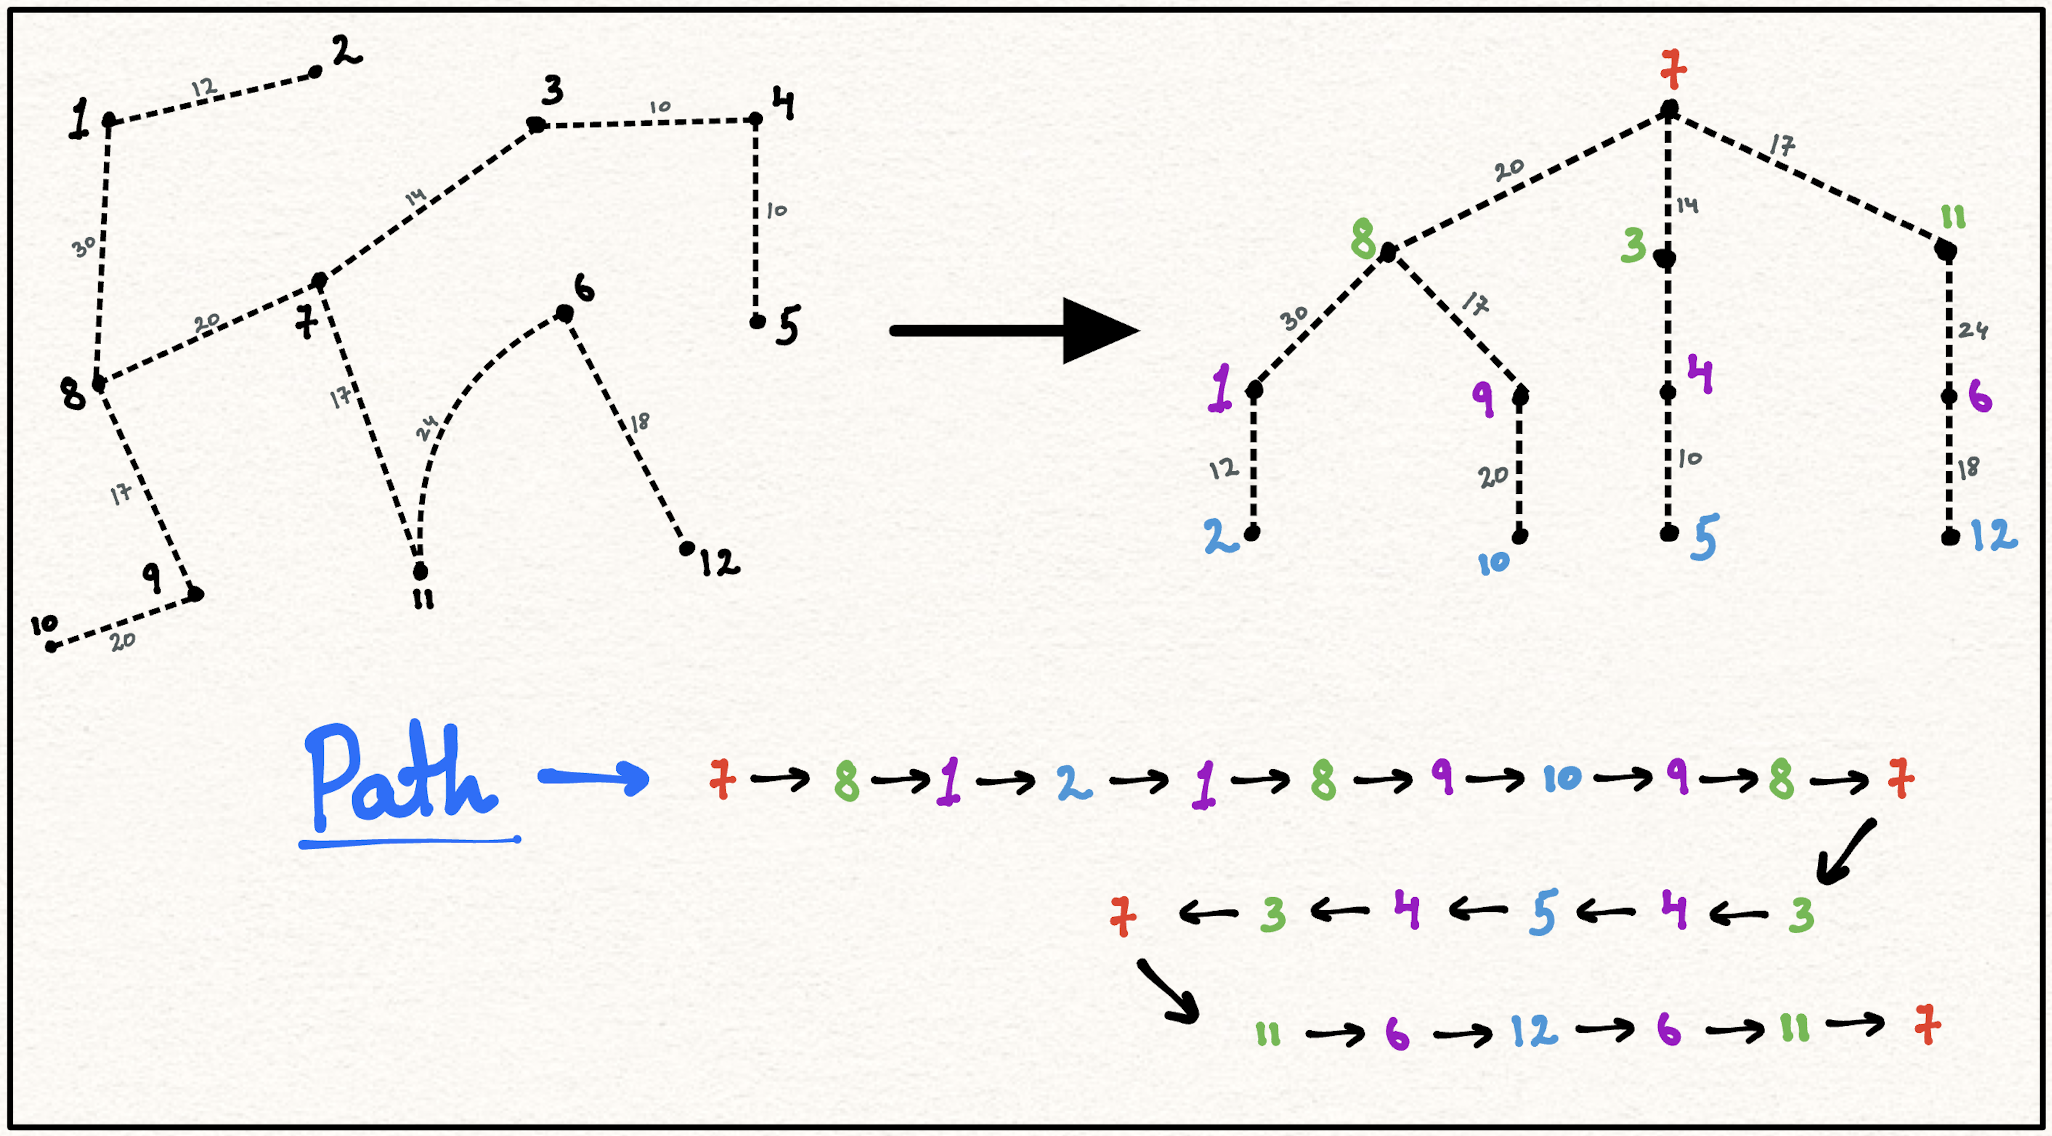 2
12
1
3
10
4
30
14
10
5
20
7
6
8
17
24
18
17
9
12
11
10
20
7
20
17
14
8
3
11
30
17
24
1
9
4
6
12
20
10
18
2
10
5
12
Path → 7 → 8 → 1 → 2 → 1 → 8 → 9 → 10 → 9 → 8 → 7
7 ← 3 ← 4 ← 5 ← 4 ← 3
11 → 6 → 12 → 6 → 11 → 7